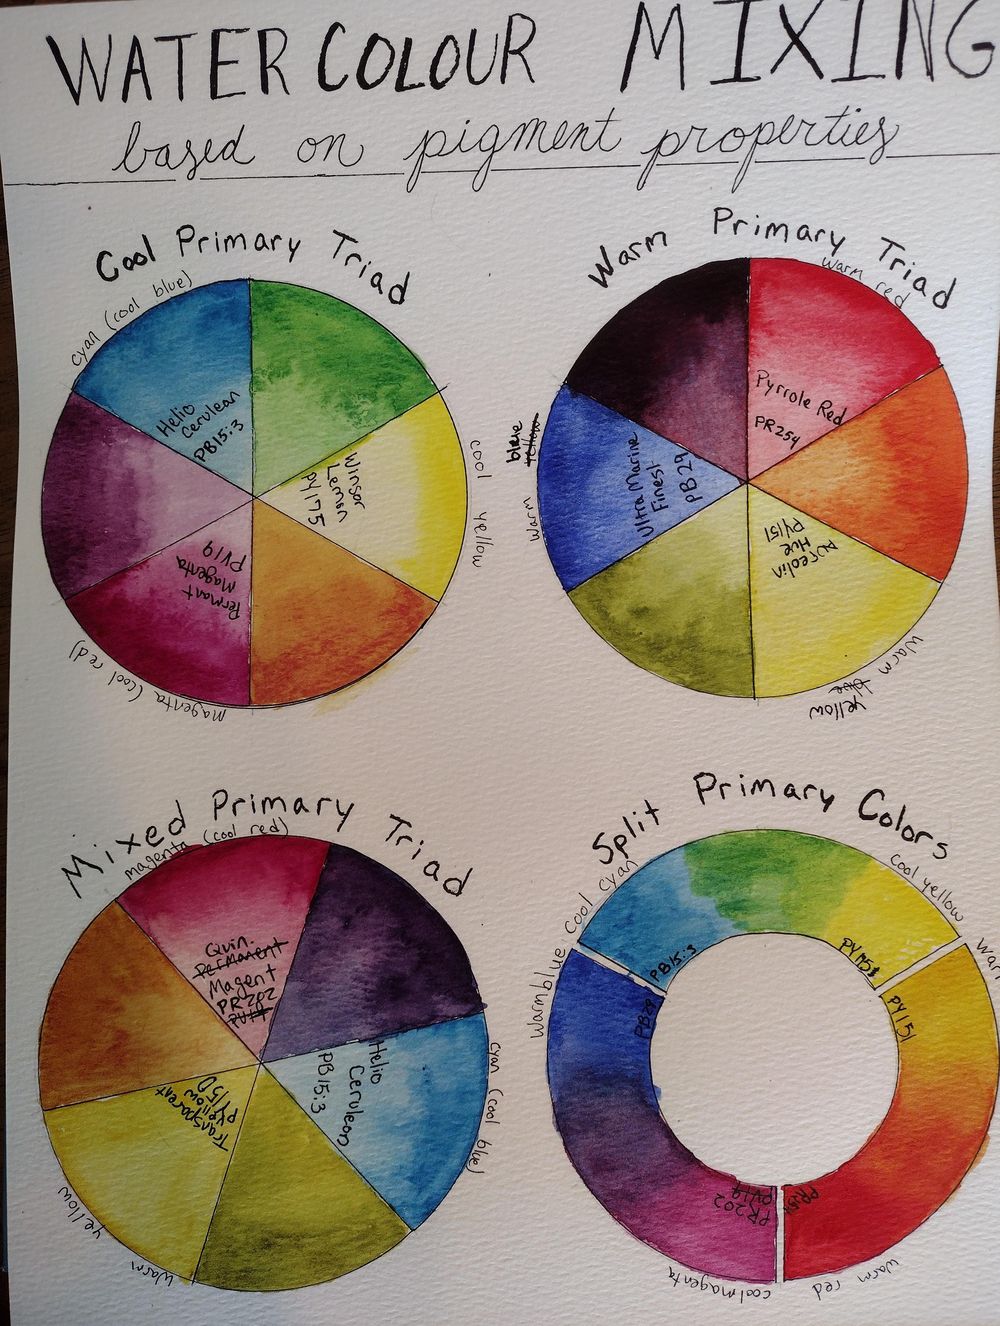 WATERCOLOUR MIXING
based on pigment properties
Cool Primary Triad
cyan (cool blue)
Helio
Cerulean
PB15:3
Winsor
Lemon
PY175
cool yellow
Permant
Magenta
PV19
magenta (cool red)
Warm Primary Triad
warm red
Pyrrole Red
PR254
Aureolin
Hue
PY151
warm blue yellow
Ultra Marine
Finest
PB29
warm yellow blue
Mixed Primary Triad
magenta (cool red)
Quin.
Permanent
Magent
PR202
PV19
Helio
Cerulean
PB15:3
cyan (cool blue)
Transparent
Yellow
PY150
warm yellow
Split Primary Colors
cool cyan
PB15:3
cool yellow
PY175
PY151
PR254
warm red
PV19
PR202
cool magenta
PB29
Warm blue